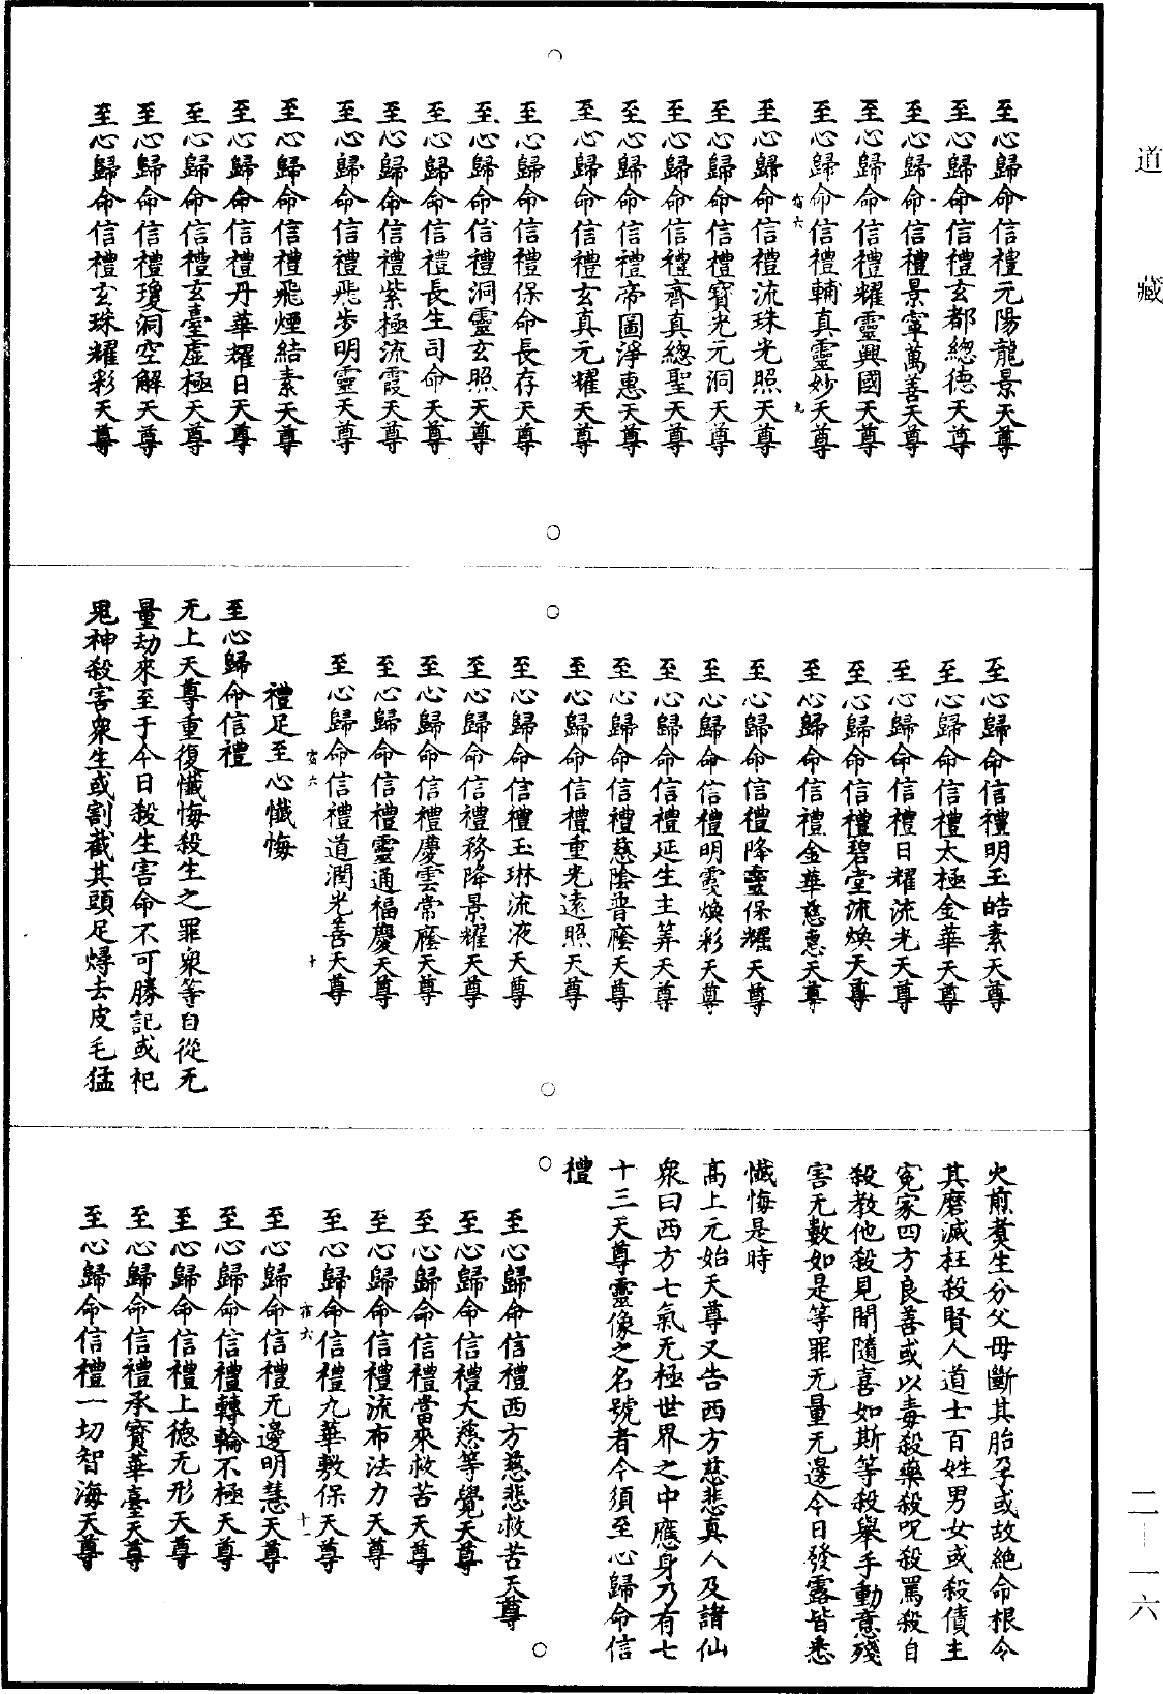 道藏
至心歸命信禮元陽龍景天尊
至心歸命信禮玄都總德天尊
至心歸命信禮景霄萬善天尊
至心歸命信禮耀靈興國天尊
至心歸命信禮輔真靈妙天尊
宿六
九
至心歸命信禮流珠光照天尊
至心歸命信禮寶光元洞天尊
至心歸命信禮齊真總聖天尊
至心歸命信禮帝圖淨惠天尊
至心歸命信禮玄真元耀天尊
至心歸命信禮保命長存天尊
至心歸命信禮洞靈玄照天尊
至心歸命信禮長生司命天尊
至心歸命信禮紫極流霞天尊
至心歸命信禮飛步明靈天尊
至心歸命信禮飛煙結素天尊
至心歸命信禮丹華耀日天尊
至心歸命信禮玄臺虛極天尊
至心歸命信禮瓊洞空解天尊
至心歸命信禮玄珠耀彩天尊
至心歸命信禮明玉皓素天尊
至心歸命信禮太極金華天尊
至心歸命信禮日耀流光天尊
至心歸命信禮碧堂流煥天尊
至心歸命信禮金華慈惠天尊
至心歸命信禮降靈保耀天尊
至心歸命信禮明霞煥彩天尊
至心歸命信禮延生主筭天尊
至心歸命信禮慈陰普廕天尊
至心歸命信禮重光遠照天尊
至心歸命信禮玉琳流液天尊
至心歸命信禮務降景耀天尊
至心歸命信禮慶雲常廕天尊
至心歸命信禮靈通福慶天尊
至心歸命信禮道潤光善天尊
宿六
十
禮足至心懺悔
至心歸命信禮
无上天尊重復懺悔殺生之罪衆等自從无
量劫來至于今日殺生害命不可勝記或祀
鬼神殺害衆生或割截其頭足燖去皮毛猛
火煎煑生分父母斷其胎孕或故絶命根令
其磨滅枉殺賢人道士百姓男女或殺債主
寃家四方良善或以毒殺藥殺呪殺罵殺自
殺教他殺見聞隨喜如斯等殺舉手動意殘
害无數如是等罪无量无邊今日發露皆悉
懺悔是時
高上元始天尊又告西方慈悲真人及諸仙
衆曰西方七氣无極世界之中應身乃有七
十三天尊靈像之名號者今須至心歸命信
禮
至心歸命信禮西方慈悲救苦天尊
至心歸命信禮大慈等覺天尊
至心歸命信禮當來救苦天尊
至心歸命信禮流布法力天尊
至心歸命信禮九華敷保天尊
宿六
十一
至心歸命信禮无邊明慧天尊
至心歸命信禮轉輪不極天尊
至心歸命信禮上德无形天尊
至心歸命信禮承寶華臺天尊
至心歸命信禮一切智海天尊
二—一六